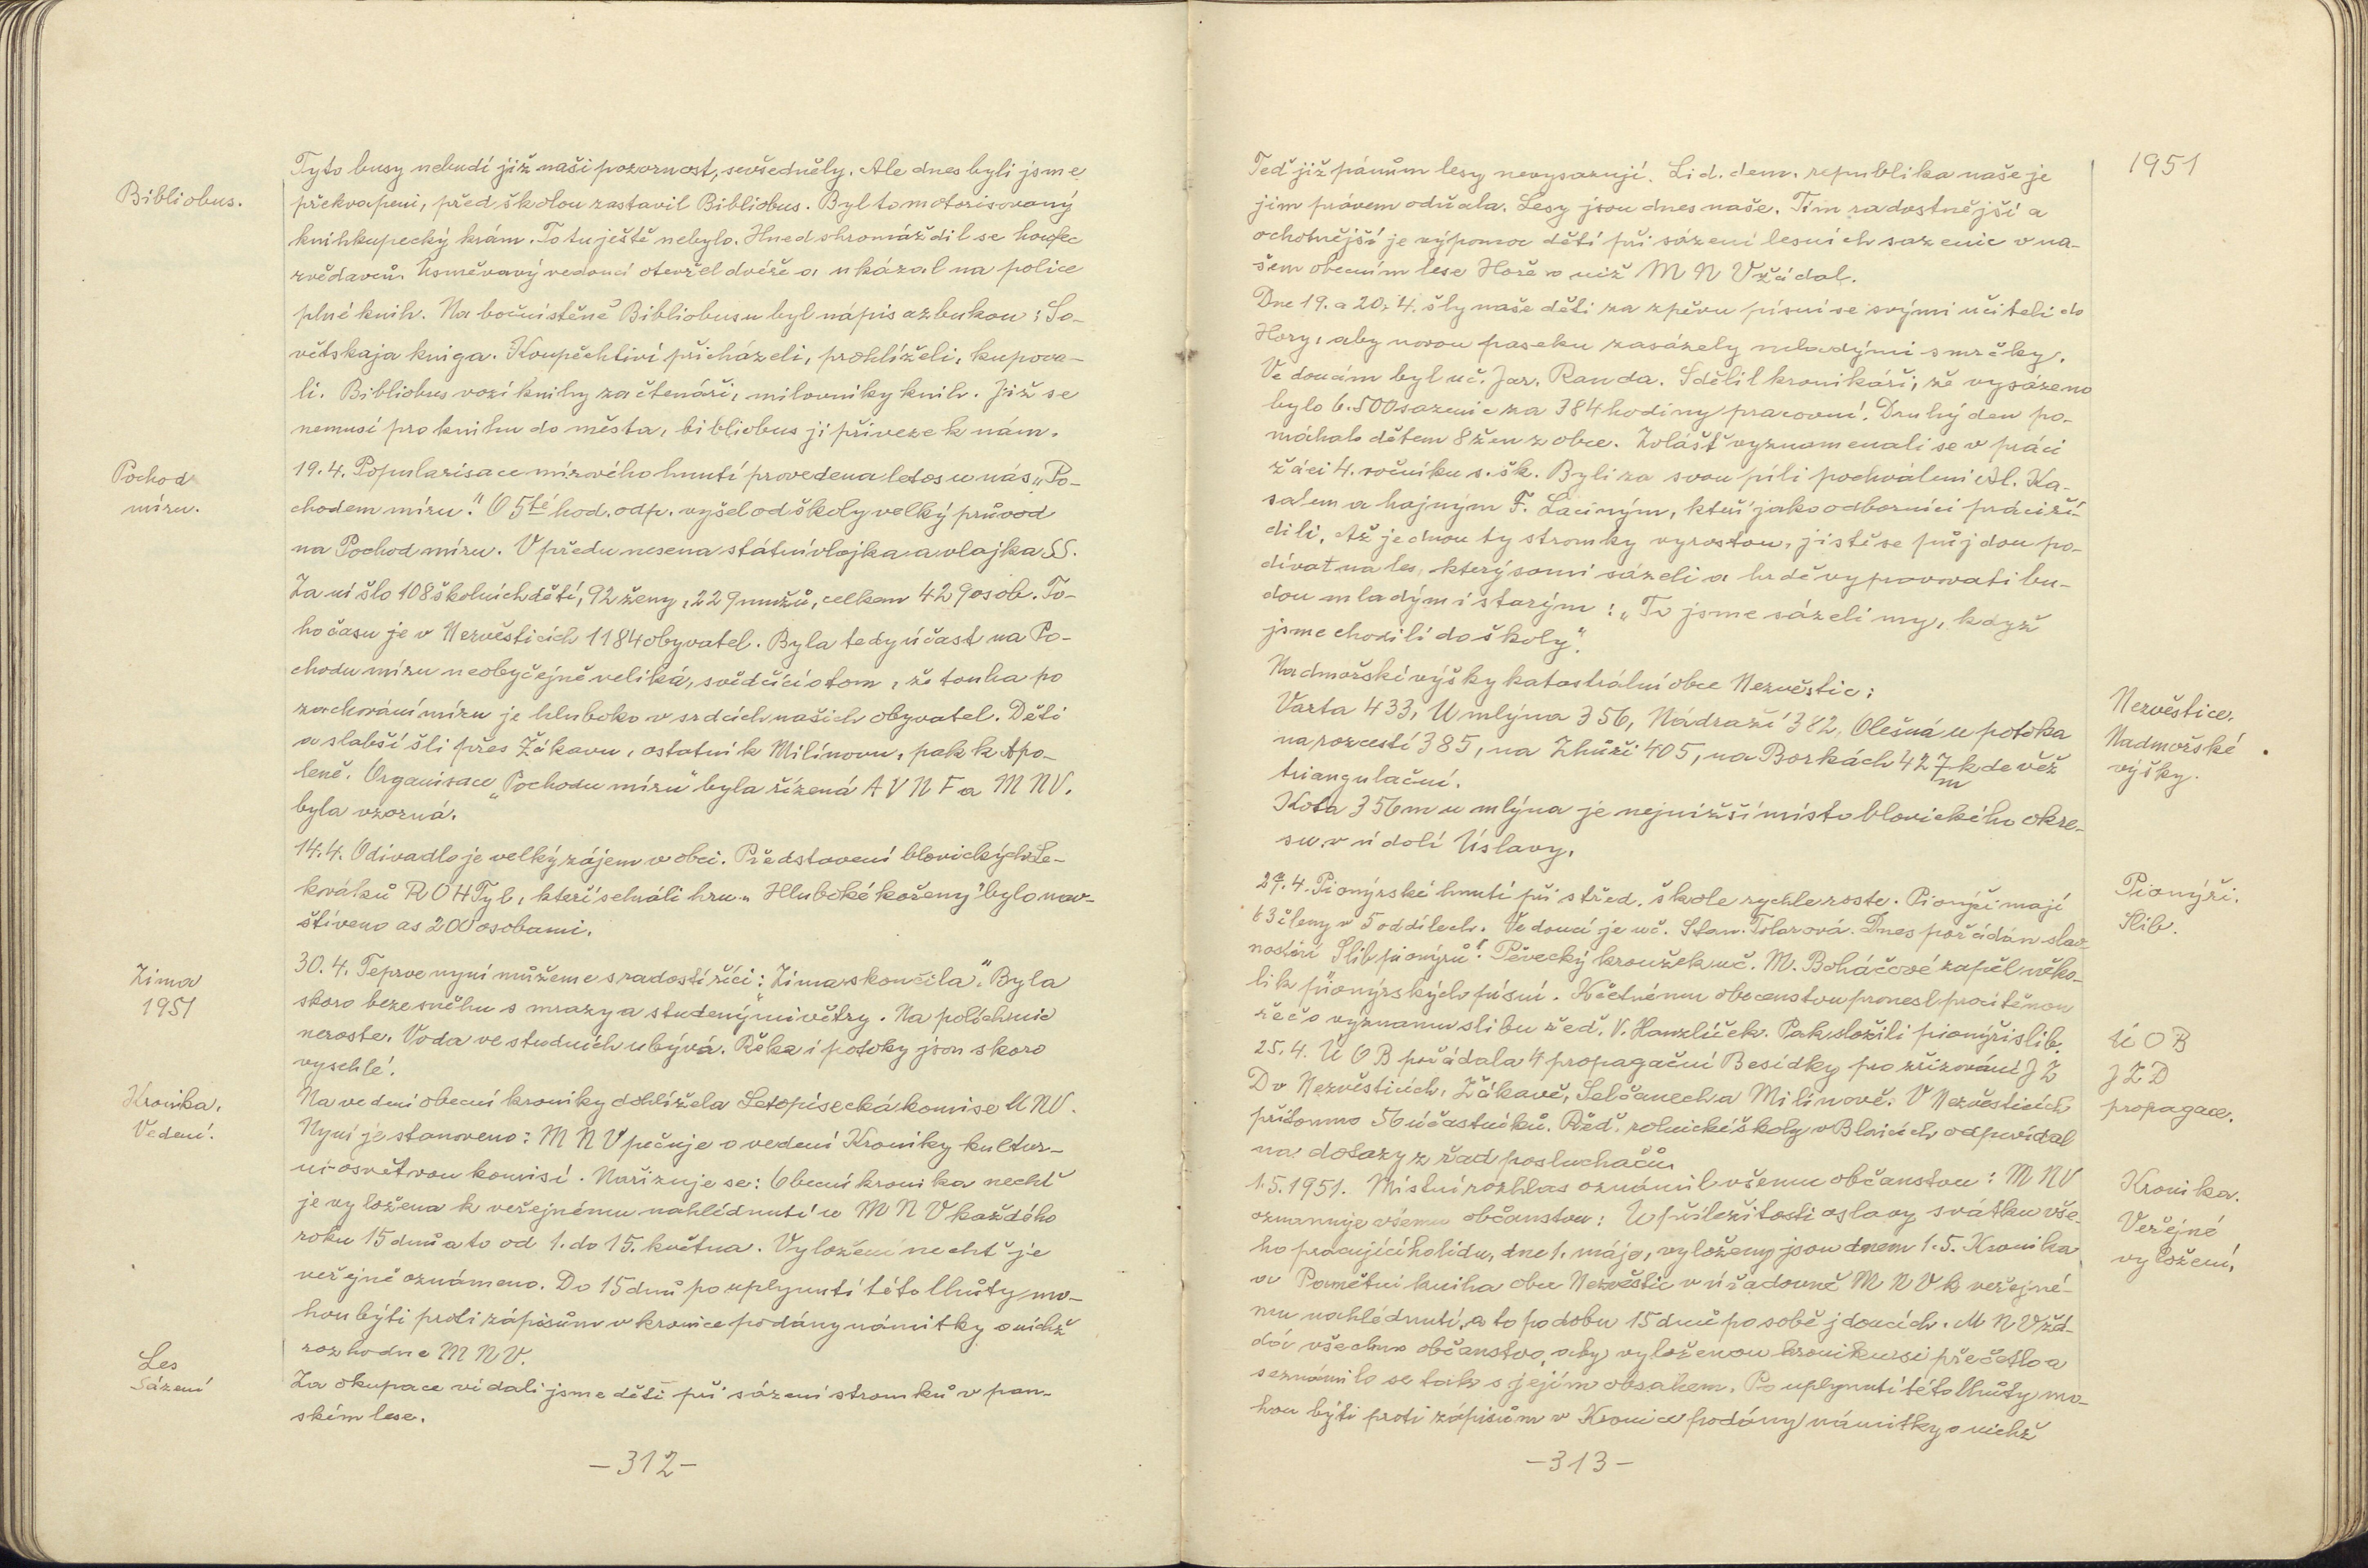 Tyto busy nebudí již naši pozornost, sevšedněly. Ale dnes byli jsme
Bibliobus.
překvapeni, před školou zastavil Bibliobus. Byl to motorisovaný
knihkupecký krám. To tu ještě nebylo. Hned shromáždil se houfec
zvědavců. Usměvavý vedoucí otevřel dvéře a ukázal na police
plné knih. Na boční stěně Bibliobusu byl nápis azbukou: So-
větskaja kniga. Koupěchtiví přicházeli, prohlíželi, kupova-
li. Bibliobus vozí knihy za čtenáři, milovníky knih. Již se
nemusí pro knihu do města, bibliobus ji přiveze k nám.
Pochod
míru.
19.4. Popularisace mírového hnutí provedena letos u nás „Po-
chodem míru." O 5té hod. odp. vyšel od školy velký průvod
na Pochod míru. V předu nesena státní vlajka a vlajka SS.
Za ní šlo 108 školních dětí, 92 ženy, 229 mužů, celkem 429 osob. To-
ho času je v Nezvěsticích 1184 obyvatel. Byla tedy účast na Po-
chodu míru neobyčejně veliká, svědčící o tom, že touha po
zachování míru je hluboko v srdcích našich obyvatel. Děti
a slabší šli přes Žákavu, ostatní k Milínovu, pak k Apo-
leně. Organisace „Pochodu míru" byla řízená AVNF a MNV.
byla vzorná.
14.4. O divadlo je velký zájem v obci. Představení blovických Le-
kváků ROH Tyl, kteří sehráli hru „Hluboké kořeny" bylo nav-
štíveno as 200 osobami.
Zima
1951
30.4. Teprve nyní můžeme s radostí říci: „Zima skončila". Byla
skoro beze sněhu s mrazy a studenými větry. Na polích nic
neroste. Voda ve studních ubývá. Řeka i potoky jsou skoro
vyschlé.
Kronika.
Vedení.
Na vedení obecní kroniky dohlížela Letopisecká komise MNV.
Nyní je stanoveno: MNV pečuje o vedení Kroniky kultur-
ní-osvětvou komisí. Nařizuje se: Obecní kronika nechť
je vyložena k veřejnému nahlédnutí u MNV každého
roku 15 dnů a to od 1. do 15. května. Vyložení nechť je
veřejně oznámeno. Do 15 dnů po uplynutí této lhůty mo-
hou býti proti zápisům v kronice podány námitky o nichž
rozhodne MNV.
Les
Sázení
Za okupace vídali jsme děti při sázení stromků v pan-
ském lese.
-312-
1951
Teď již pánům lesy nevysazují. Lid. dem. republika naše je
jim právem odňala. Lesy jsou dnes naše. Tím radostnější a
ochotnější je výpomoc dětí při sázení lesních sazenic v na-
šem obecním lese Hoře o niž MNV žádal.
Dne 19. a 20. 4. šly naše děti za zpěvu písní se svými učiteli do
Hory, aby novou paseku zasázely mladými smrčky.
Vedoucím byl uč. Jar. Randa. Sdělil kronikáři, že vysázeno
bylo 6.500 sazenic za 384 hodiny pracovní. Druhý den po-
máhalo dětem 8 žen z obce. Zvlášť vyznamenali se v práci
žáci 4. ročníku s. šk. Byli za svou píli pochváleni Al. Ka-
salem a hajným F. Laciným, kteří jako odborníci práci ří-
dili. Až jednou ty stromky vyrostou, jistě se půjdou po-
dívat na les, který sami sázeli a hrdě vypravovati bu-
dou mladým i starým: „To jsme sázeli my, když
jsme chodili do školy."
Nezvěstice.
Nadmořské
výšky.
Nadmořské výšky katastrální obce Nezvěstic:
Varta 433, U mlýna 356, Nádraží 382, Olešná u potoka
na rozcestí 385, na Zhůři 405, na Borkách 427 m kde věž
triangulační.
Kota 356 m u mlýna je nejnižší místo blovického okre-
su v údolí Úslavy.
Pionýři.
Slib.
29.4. Pionýrské hnutí při střed. škole rychle roste. Pionýři mají
63 členy v 5 oddílech. Vedoucí je uč. Stan. Tolarová. Dnes pořádán slav-
nostní „Slib pionýrů". Pěvecký kroužek uč. M. Boháčové zapěl něko-
lik pionýrských písní. K četnému obecenstvu pronesl procítěnou
řeč o významu slibu řed. V. Hanzlíček. Pak složili pionýři slib.
ÚOB
JZD
propagace.
25.4. ÚOB pořádala 4 propagační Besídky pro zřizování JZ
D v Nezvěsticích, Žákavě, Selčanech a Milínově. V Nezvěsticích
přítomno 56 účastníků. Řed. rolnické školy v Blovicích odpovídal
na dotazy z řad posluchačů.
Kronika.
Veřejné
vyložení.
1.5.1951. Místní rozhlas oznámil všemu občanstvu: MNV
oznamuje všemu občanstvu: U příležitosti oslavy svátku vše-
ho pracujícího lidu, dne 1. máje, vyloženy jsou dnem 1.5. Kronika
a Pamětní kniha obce Nezvěstic v úřadovně MNV k veřejné-
mu nahlédnutí, a to po dobu 15 dnů po sobě jdoucích. MNV žá-
dá všechno občanstvo, aby vyloženou kroniku si přečetlo a
seznámilo se tak s jejím obsahem. Po uplynutí této lhůty mo-
hou býti proti zápisům v Kronice podány námitky o nichž
-313-